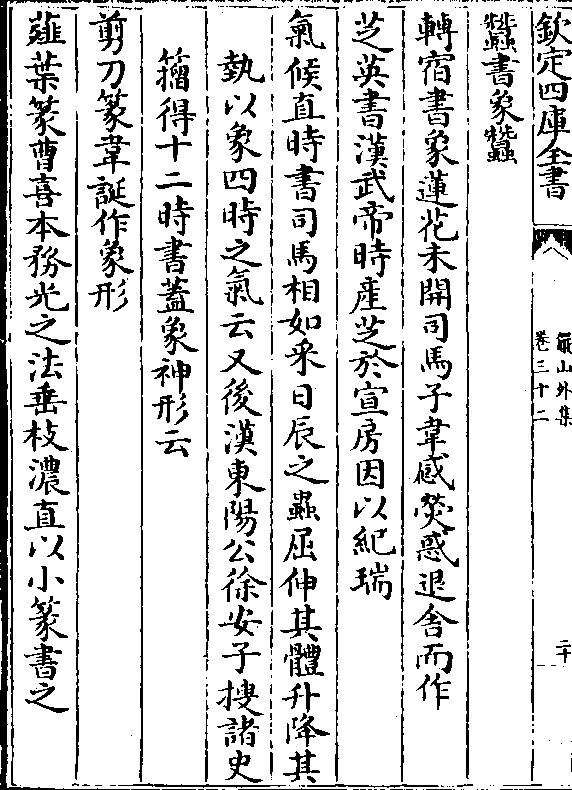 欽定四庫全書
儼山外集
卷三十二
二十
蠶書象蠶
轉宿書象蓮花未開司馬子韋感熒惑退舍而作
芝英書漢武帝時產芝於宣房因以紀瑞
氣候直時書司馬相如采日辰之蟲屈伸其體升降其
埶以象四時之氣云又後漢東陽公徐安子搜諸史
籀得十二時書蓋象神形云
剪刀篆韋誕作象形
薤葉篆曹喜本務光之法垂枝濃直以小篆書之